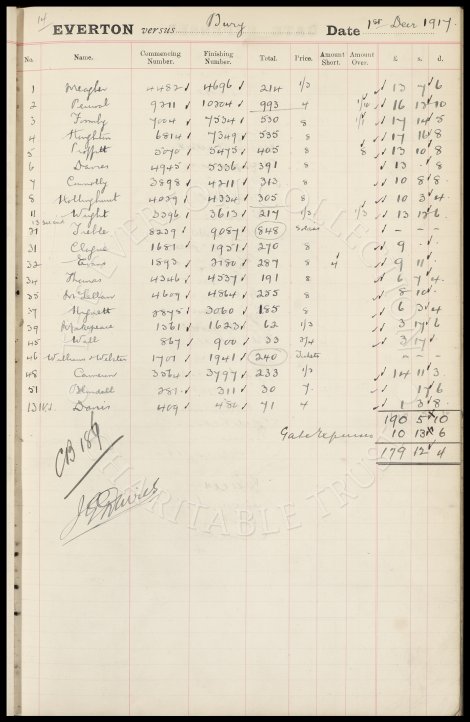 14
EVERTON versus Bury Date 1st Decr 1917.
No. Name. Commencing Number. Finishing Number. Total. Price. Amount Short. Amount Over. £ s. d.
1 Meagher 4482 4696 214 1/3 13 7 6
2 Percival 9211 10204 993 4 1/10 16 13 10
3 Formby 7004 7534 530 8 1/1 17 14 5
4 Houghton 6814 7349 535 8 17 16 8
5 Proffitt 5070 5475 405 8 8 13 10 8
6 Davies 4945 5336 391 8 13 - 8
7 Connolly 3898 4211 313 8 10 8 8
8 Hollinghurst 4029 4334 305 8 10 3 4
11 Wright 3396 3613 217 1/3 1/3 13 12 6
21 Treble 8239 9087 848 - - -
31 Clague 1681 1951 270 8 9 - -
32 Evans 1893 2180 287 8 4 9 11 -
34 Thomas 4346 4537 191 8 6 7 4
35 McLellan 4609 4864 255 8 8 10 -
37 2875 3060 185 8 6 3 4
39 Makepeace 1561 1623 62 1/3 3 17 6
45 Will 867 900 33 2/4 3 17 -
46 Williams & Webster 1701 1941 240 Tickets - - -
48 Cameron 3564 3797 233 1/3 14 11 3
51 Blundell 281 311 30 7 17 6
Davies 409 480 71 4 1 3 8
190 5 10
Gate Expenses 10 13 6
179 12 4
CB 189
EVERTON COLLECTION
CHARITABLE TRUST